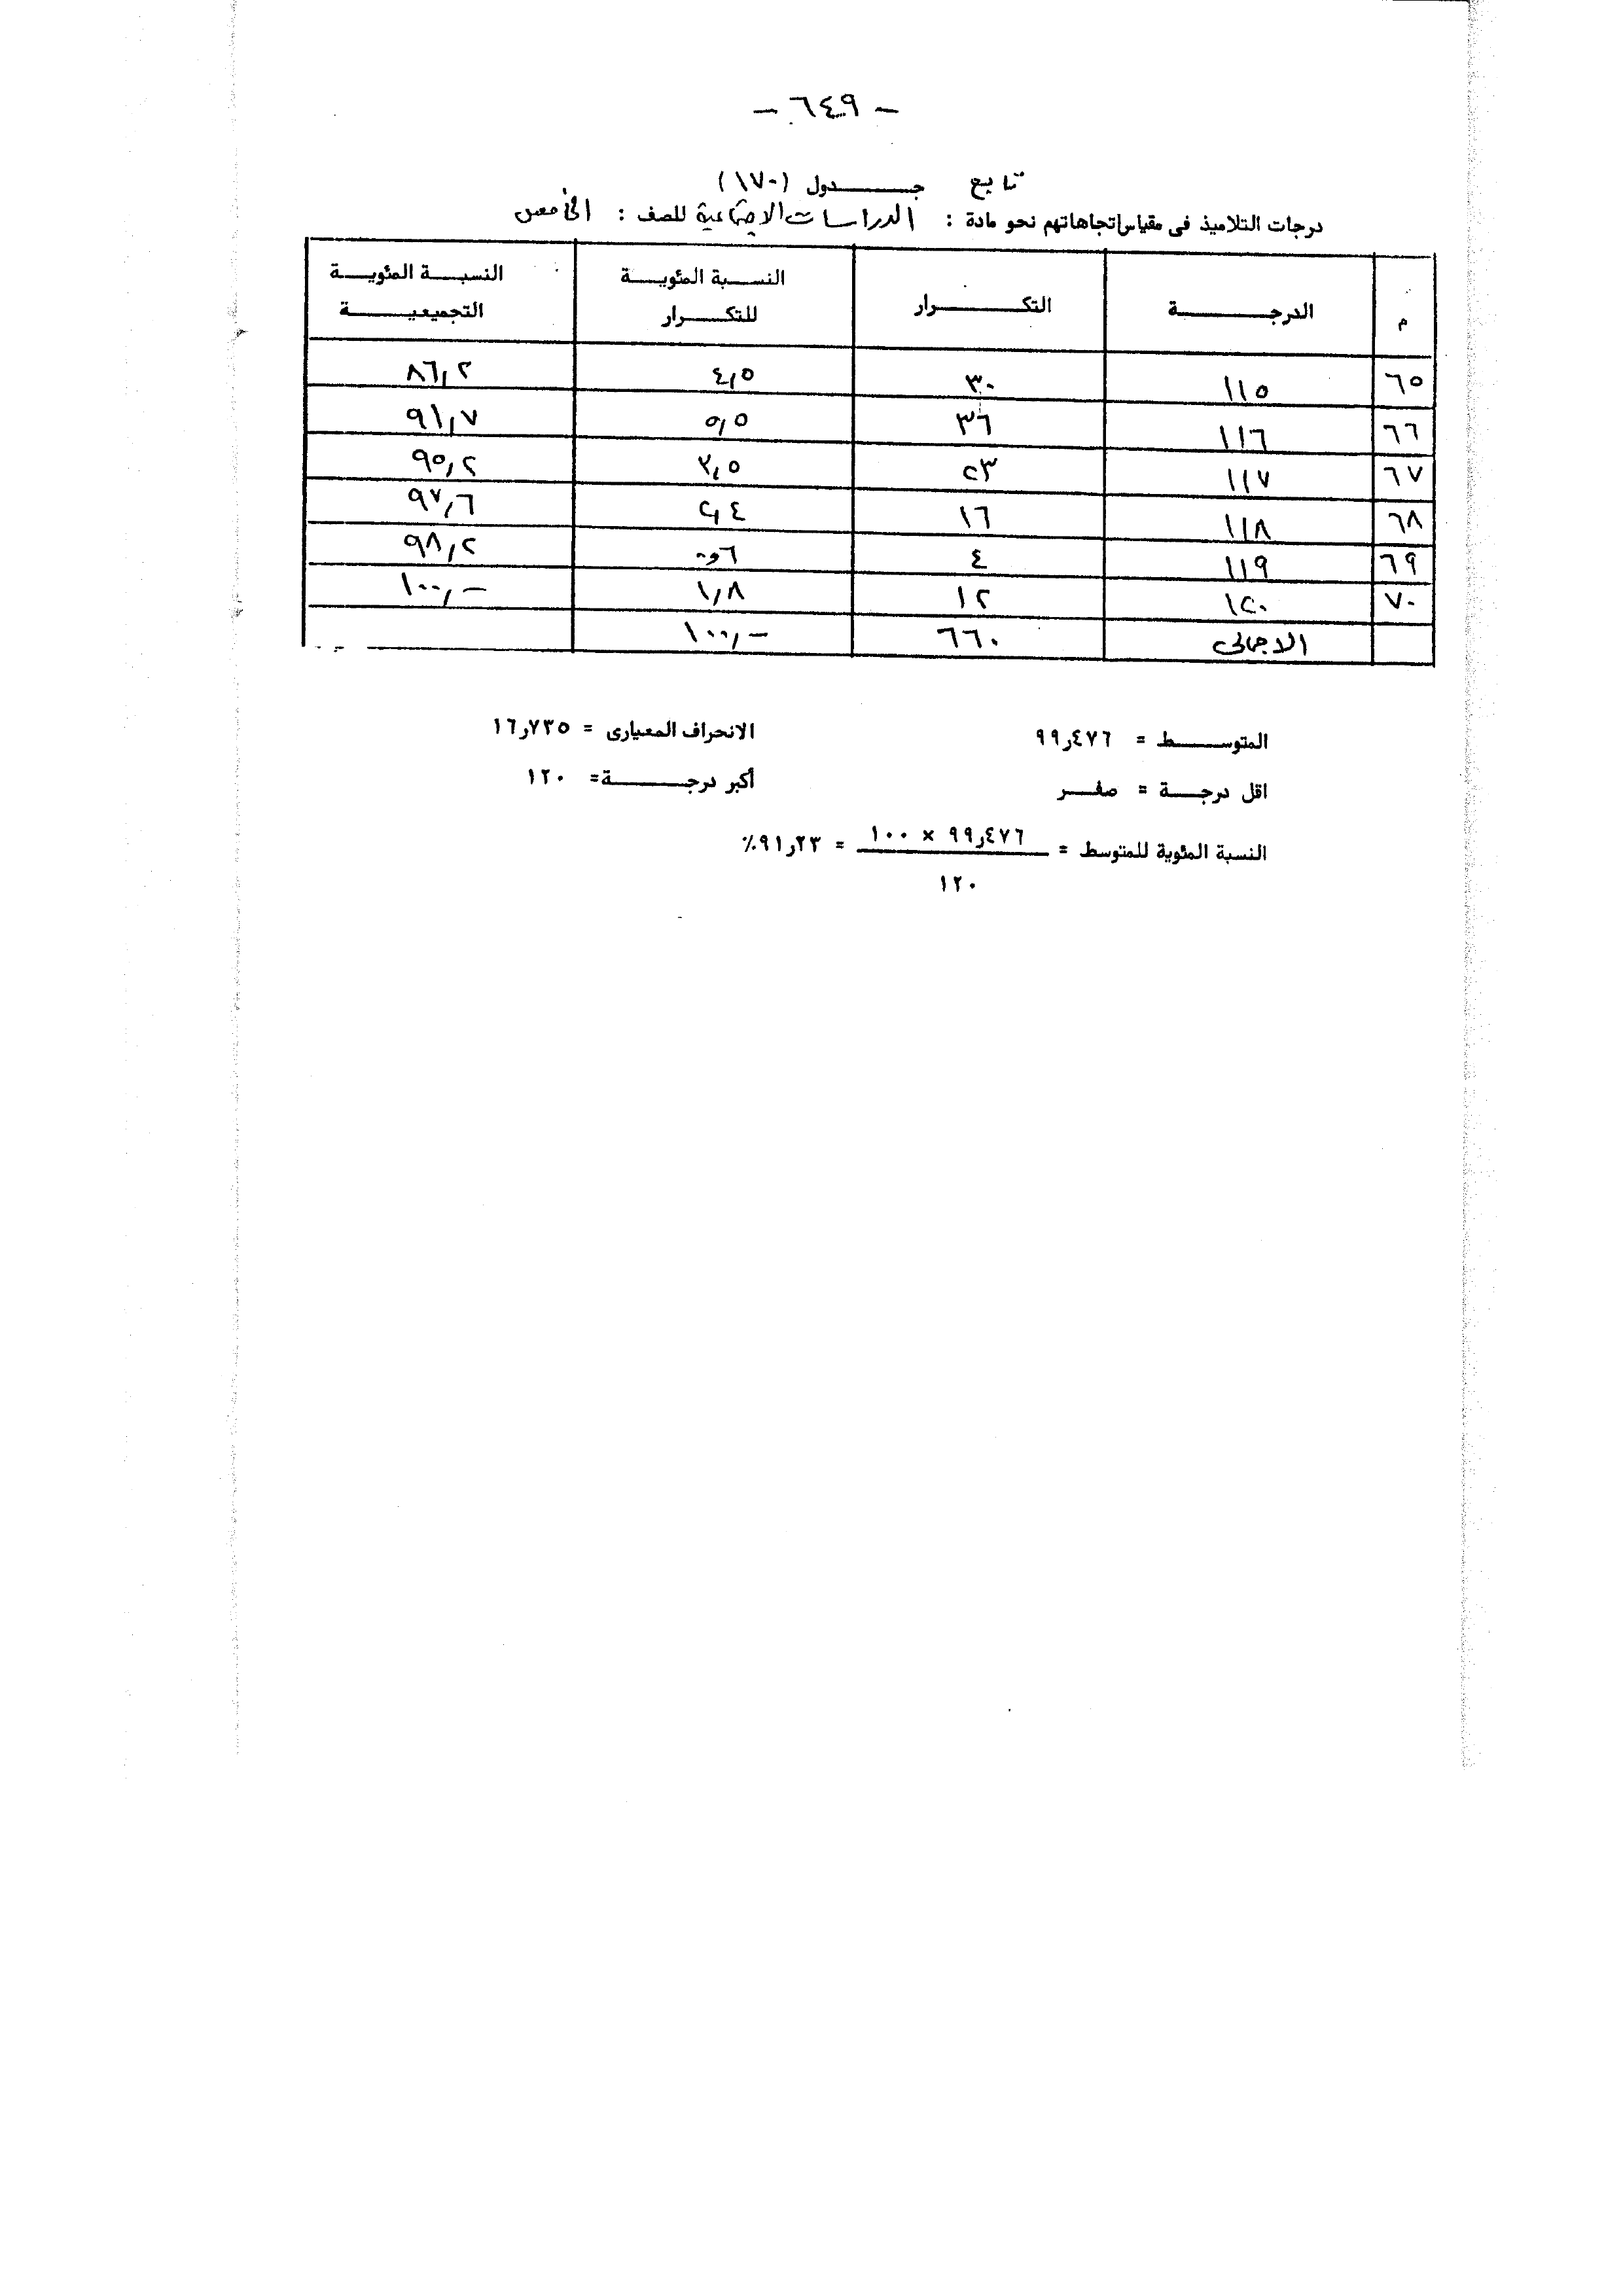 - ٦٤٩ -
تابع جدول (١٧٠)
درجات التلاميذ فى مقياس اتجاهاتهم نحو مادة : الدراسات الاجتماعية للصف : الخامس
م الدرجة التكرار النسبة المئوية للتكرار النسبة المئوية التجميعية
٦٥ ١١٥ ٣٠ ٤,٥ ٨٦,٢
٦٦ ١١٦ ٣٦ ٥,٥ ٩١,٧
٦٧ ١١٧ ٢٣ ٣,٥ ٩٥,٢
٦٨ ١١٨ ١٦ ٢,٤ ٩٧,٦
٦٩ ١١٩ ٤ ٠,٦ ٩٨,٢
٧٠ ١٢٠ ١٢ ١,٨ ١٠٠,-
الاجمالى ٦٦٠ ١٠٠,-
المتوسط = ٩٩٫٤٧٦ الانحراف المعيارى = ١٦٫٧٣٥
اقل درجة = صفر أكبر درجة = ١٢٠
النسبة المئوية للمتوسط = ٩٩٫٤٧٦ × ١٠٠ = ٩١٫٢٣٪
١٢٠